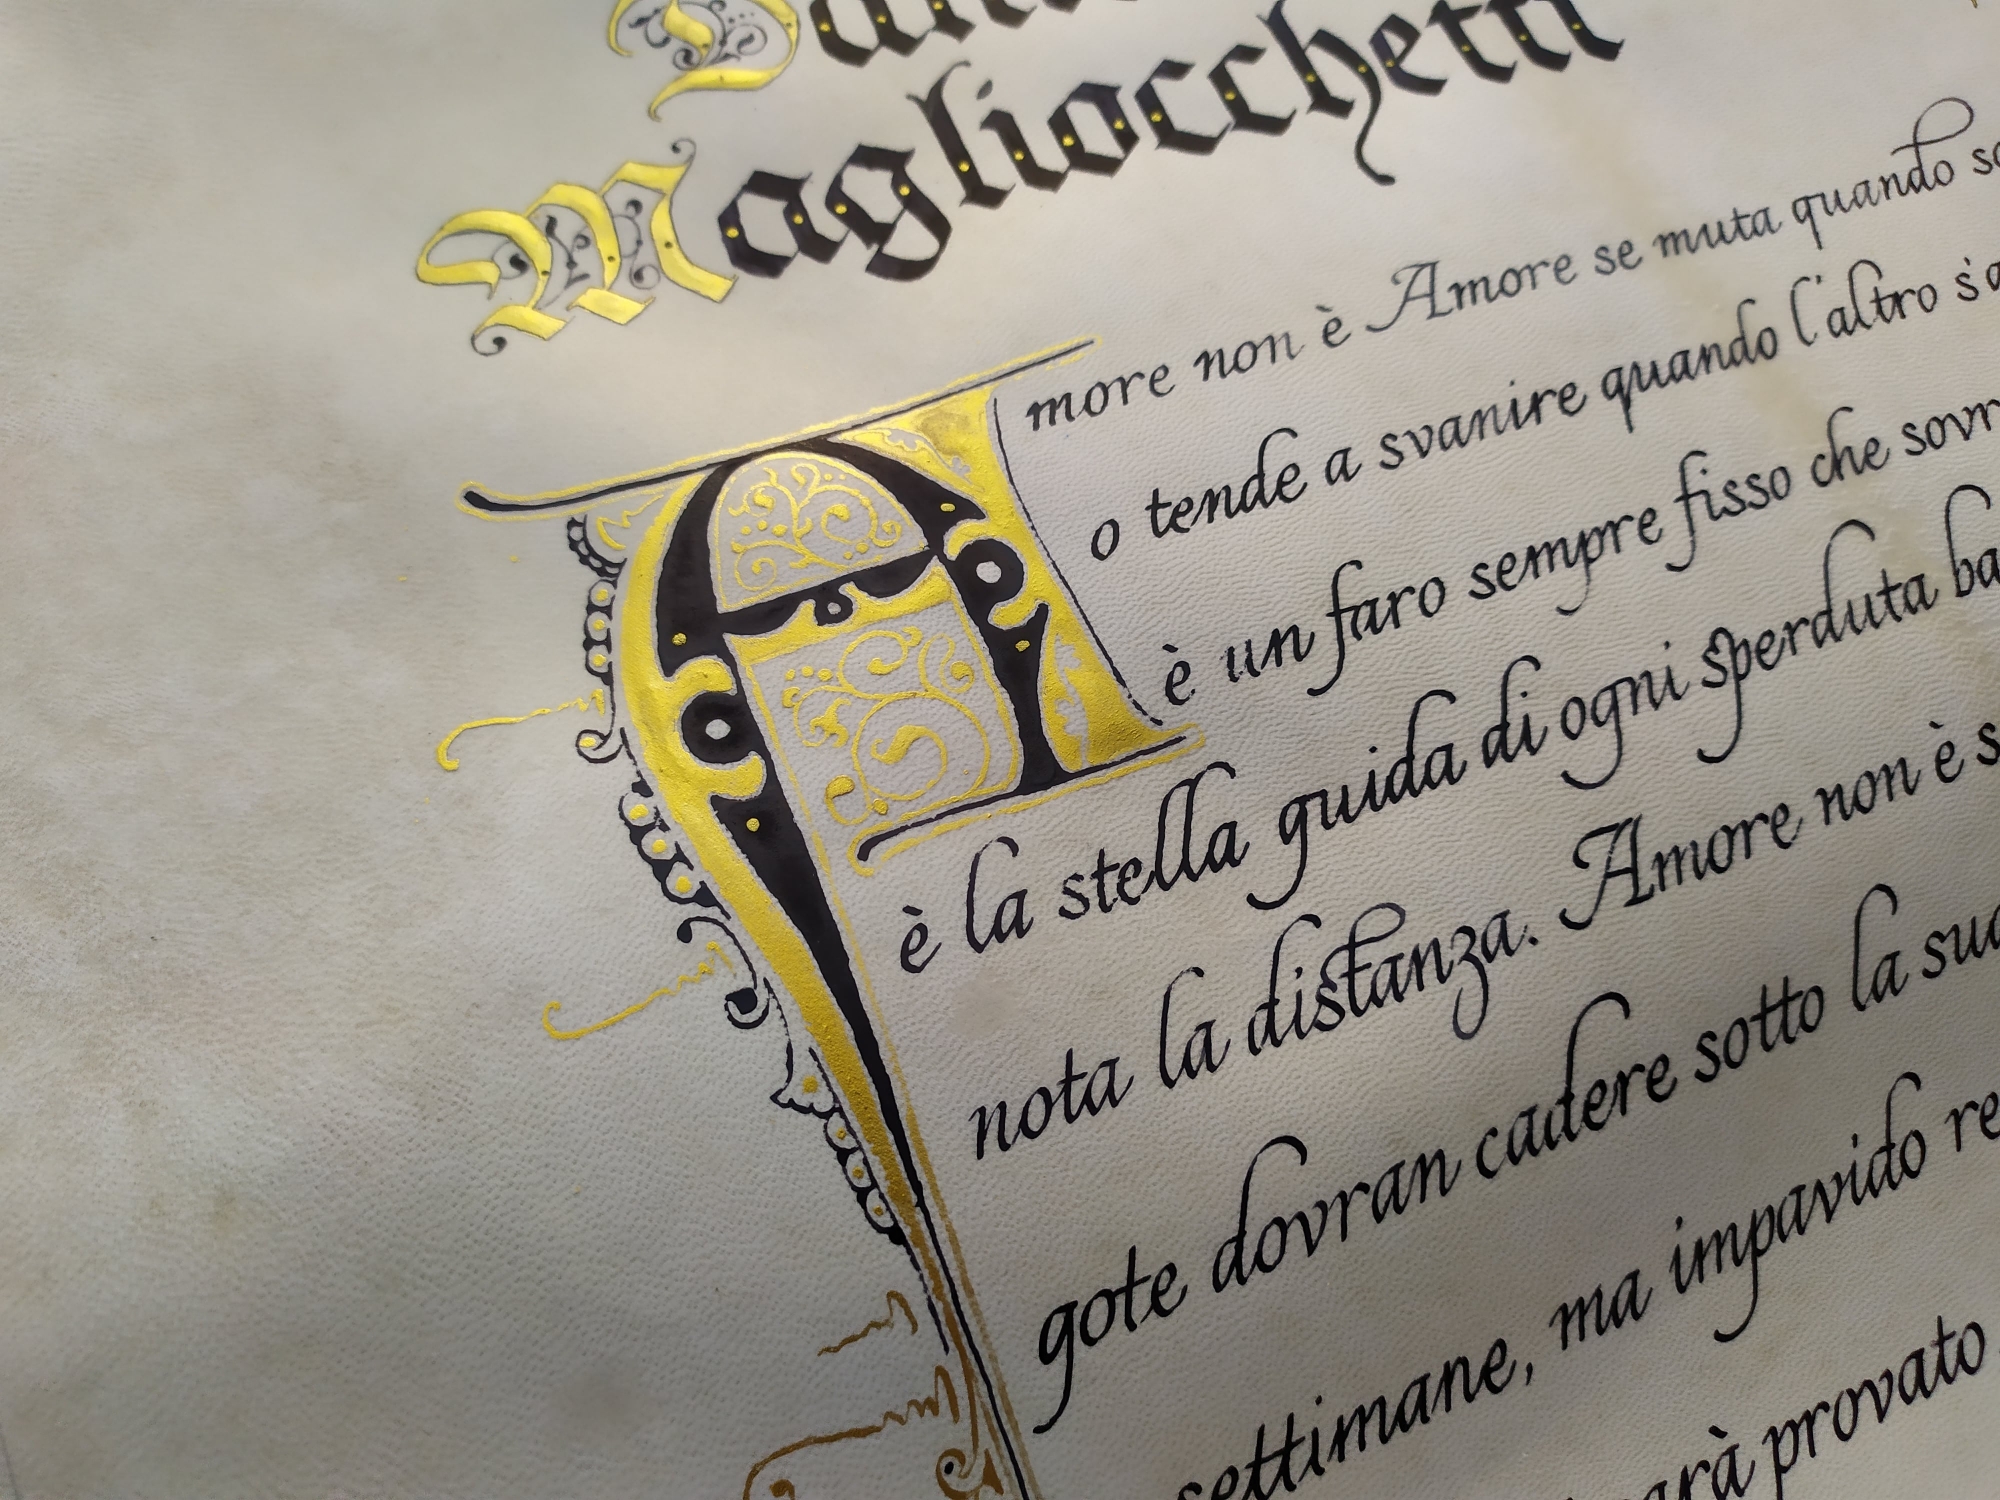 Magliocchetti
Amore non è Amore se muta quando
o tende a svanire quando l'altro s'a
è un faro sempre fisso che sovr
è la stella guida di ogni sperduta ba
nota la distanza. Amore non è s
gote dovran cadere sotto la sua
settimane, ma impavido re
arà provato